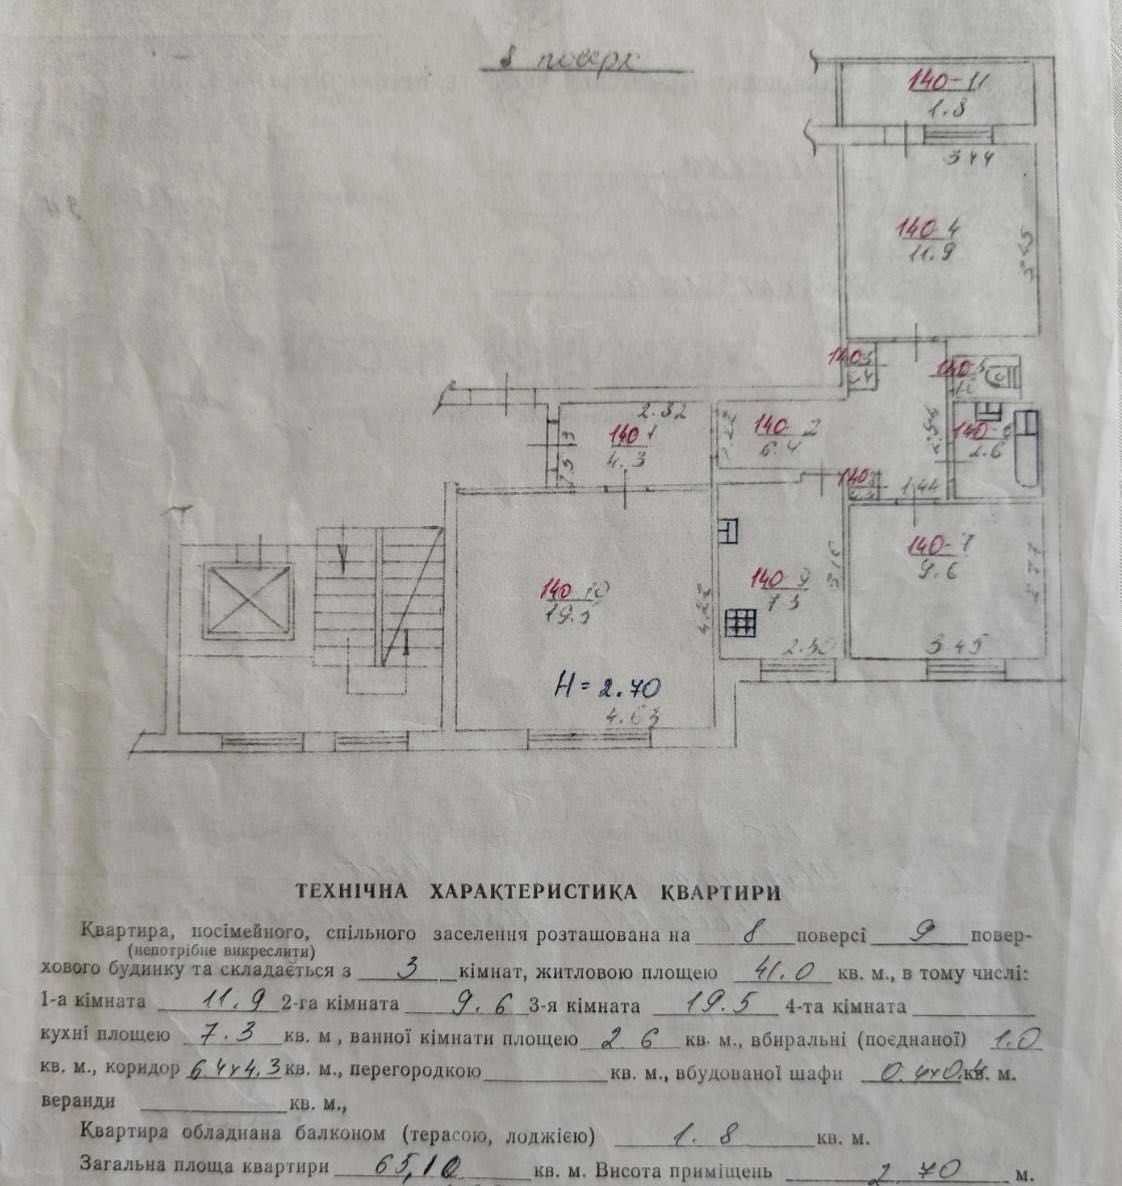 8 поверх
140-11
1.8
3.44
140-4
11.9
3.45
140-3
140-5
2.82
140-1
4.3
140-2
6.4
140-6
2.6
1.44
140-7
9.6
140-10
19.5
140-9
7.3
3.45
2.30
H = 2.70
4.63
ТЕХНІЧНА ХАРАКТЕРИСТИКА КВАРТИРИ
Квартира, посімейного, спільного заселення розташована на 8 поверсі 9 повер-
(непотрібне викреслити)
хового будинку та складається з 3 кімнат, житловою площею 41.0 кв. м., в тому числі:
1-а кімната 11.9 2-га кімната 9.6 3-я кімната 19.5 4-та кімната
кухні площею 7.3 кв. м , ванної кімнати площею 2 6 кв. м., вбиральні (поєднаної) 1.0
кв. м., коридор 6 4х4.3 кв. м., перегородкою кв. м., вбудованої шафи 0.4х0.4 кв. м.
веранди кв. м.,
Квартира обладнана балконом (терасою, лоджією) 1.8 кв. м.
Загальна площа квартири 65,10 кв. м. Висота приміщень 2 70 м.